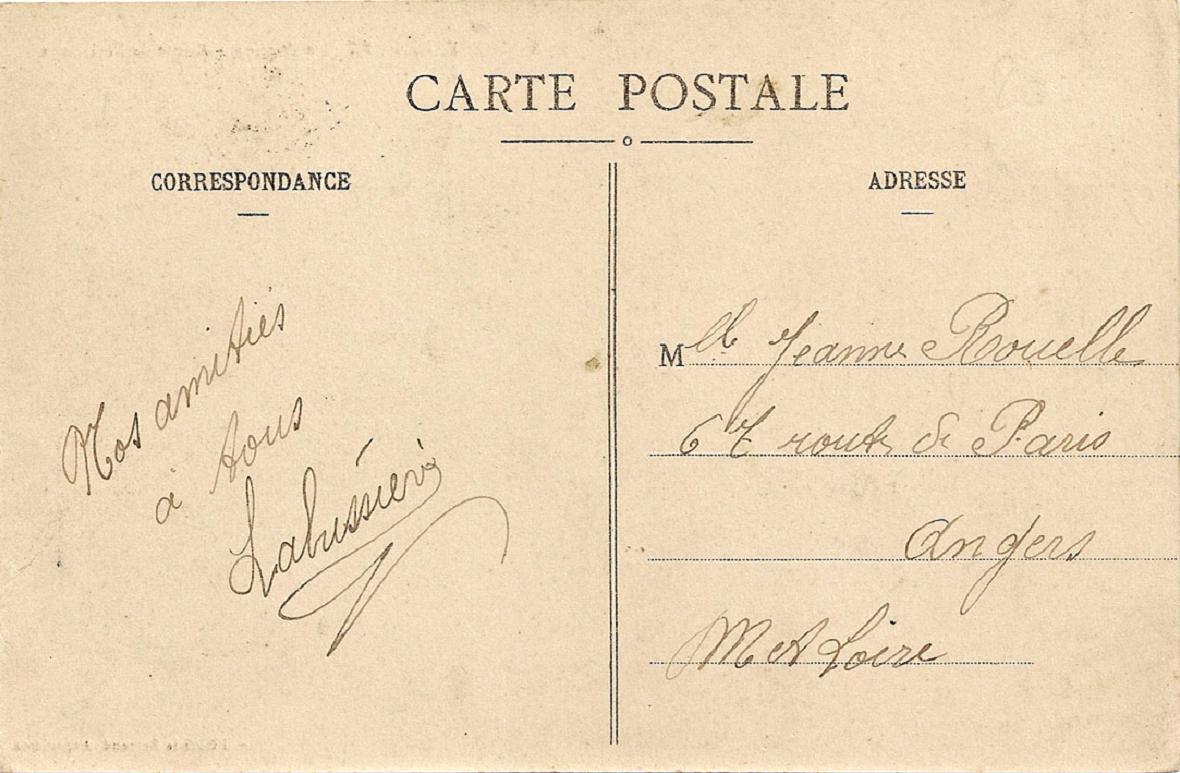 CARTE POSTALE
CORRESPONDANCE
Nos amitiés
à tous
Labussière
ADRESSE
Mlle Jeanne Rouelle
67 route de Paris
Angers
M et Loire